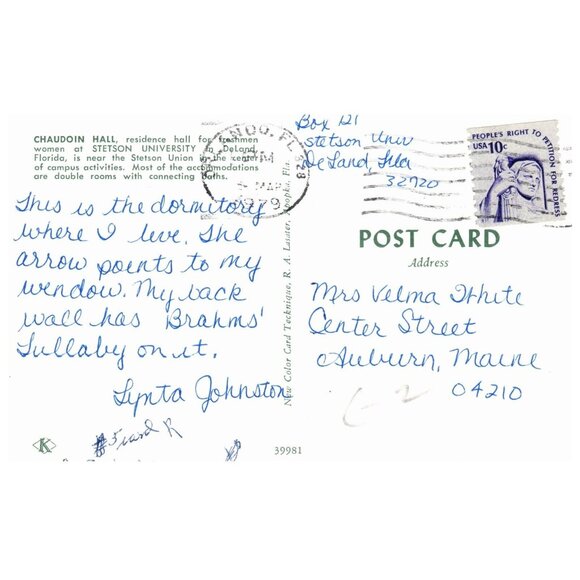 CHAUDOIN HALL, residence hall for freshmen
women at STETSON UNIVERSITY in DeLand,
Florida, is near the Stetson Union in the center
of campus activities. Most of the accommodations
are double rooms with connecting baths.
This is the dormitory
where I live. The
arrow points to my
window. My back
wall has Brahms'
Lullaby on it.
Lynta Johnston
39981
K
New Color Card Technique, R. A. Lauter, Apopka, Fla.
FL 328
PM
MAR
1979
Box 121
Stetson Univ
DeLand, Fla
32920
PEOPLE'S RIGHT TO PETITION FOR REDRESS
USA 10c
POST CARD
Address
Mrs Velma White
Center Street
Auburn, Maine
04210